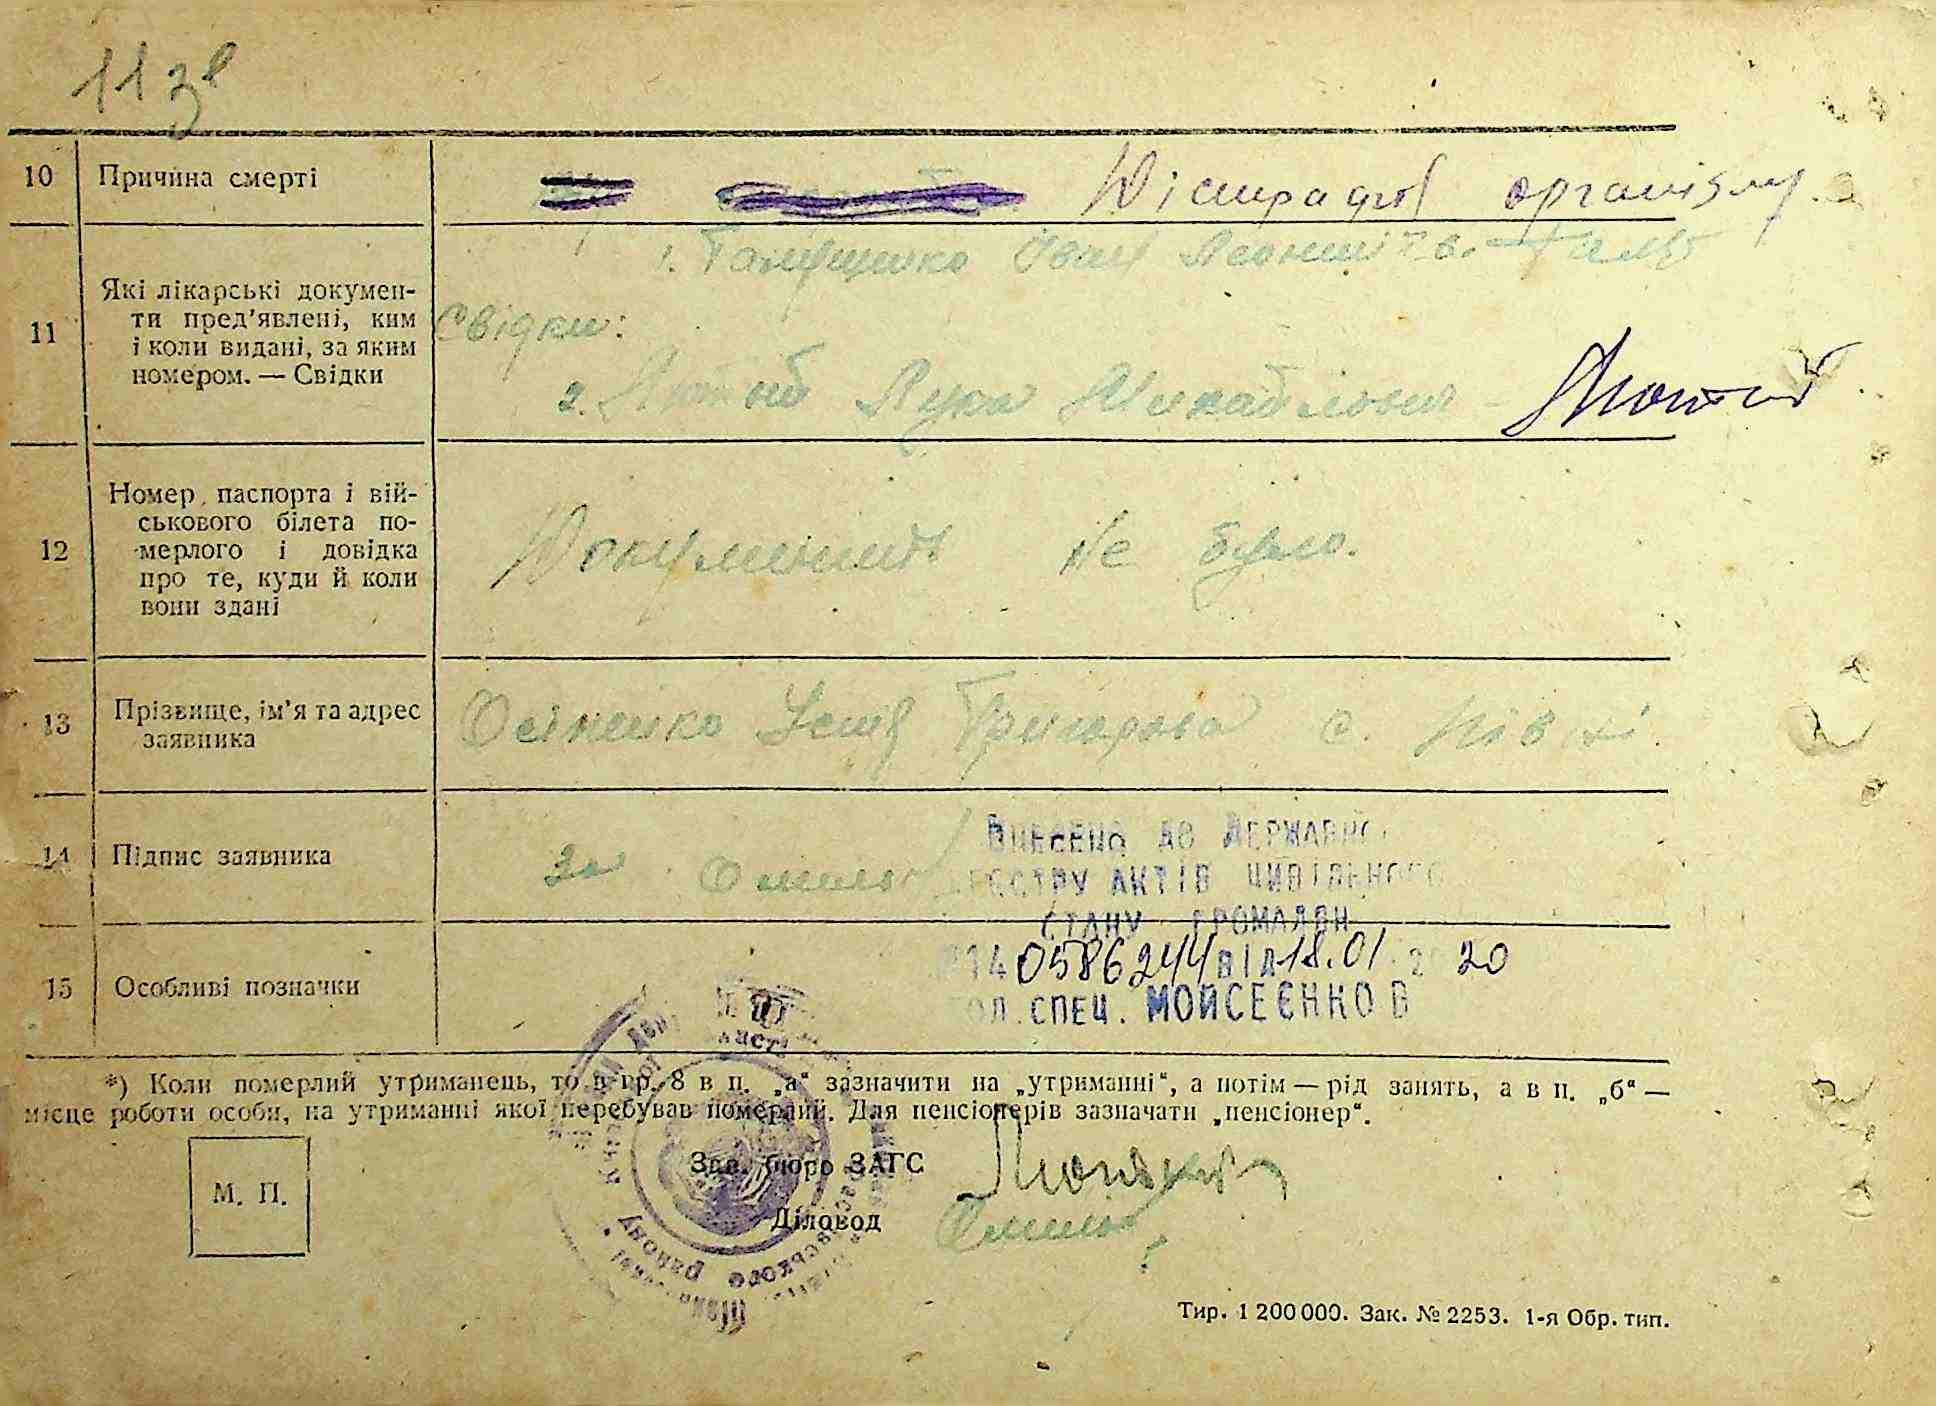 11 зв
10 Причина смерті
організму
11 Які лікарські докумен-
ти пред'явлені, ким
і коли видані, за яким
номером. — Свідки
1. Іван
Свідки:
2. Лука Михайлович
12 Номер паспорта і вій-
ськового білета по-
мерлого і довідка
про те, куди й коли
вони здані
Документів не було.
13 Прізвище, ім'я та адрес
заявника
Григорівна с.
14 Підпис заявника
За
ВНЕСЕНО ДО ДЕРЖАВНО
РЕЄСТРУ АКТІВ ЦИВІЛЬНОГО
СТАНУ ГРОМАДЯН
15 Особливі позначки
№140586244 ВІД 18.01.2020
ГОЛ. СПЕЦ. МОЙСЕЄНКО В
*) Коли померлий утриманець, то в гр. 8 в п. „а“ зазначити на „утриманні“, а потім — рід занять, а в п. „б“ —
місце роботи особи, на утриманні якої перебував померлий. Для пенсіонерів зазначати „пенсіонер“.
М. П.
Зав. бюро ЗАГС
Діловод
району
Тир. 1 200 000. Зак. № 2253. 1-я Обр. тип.